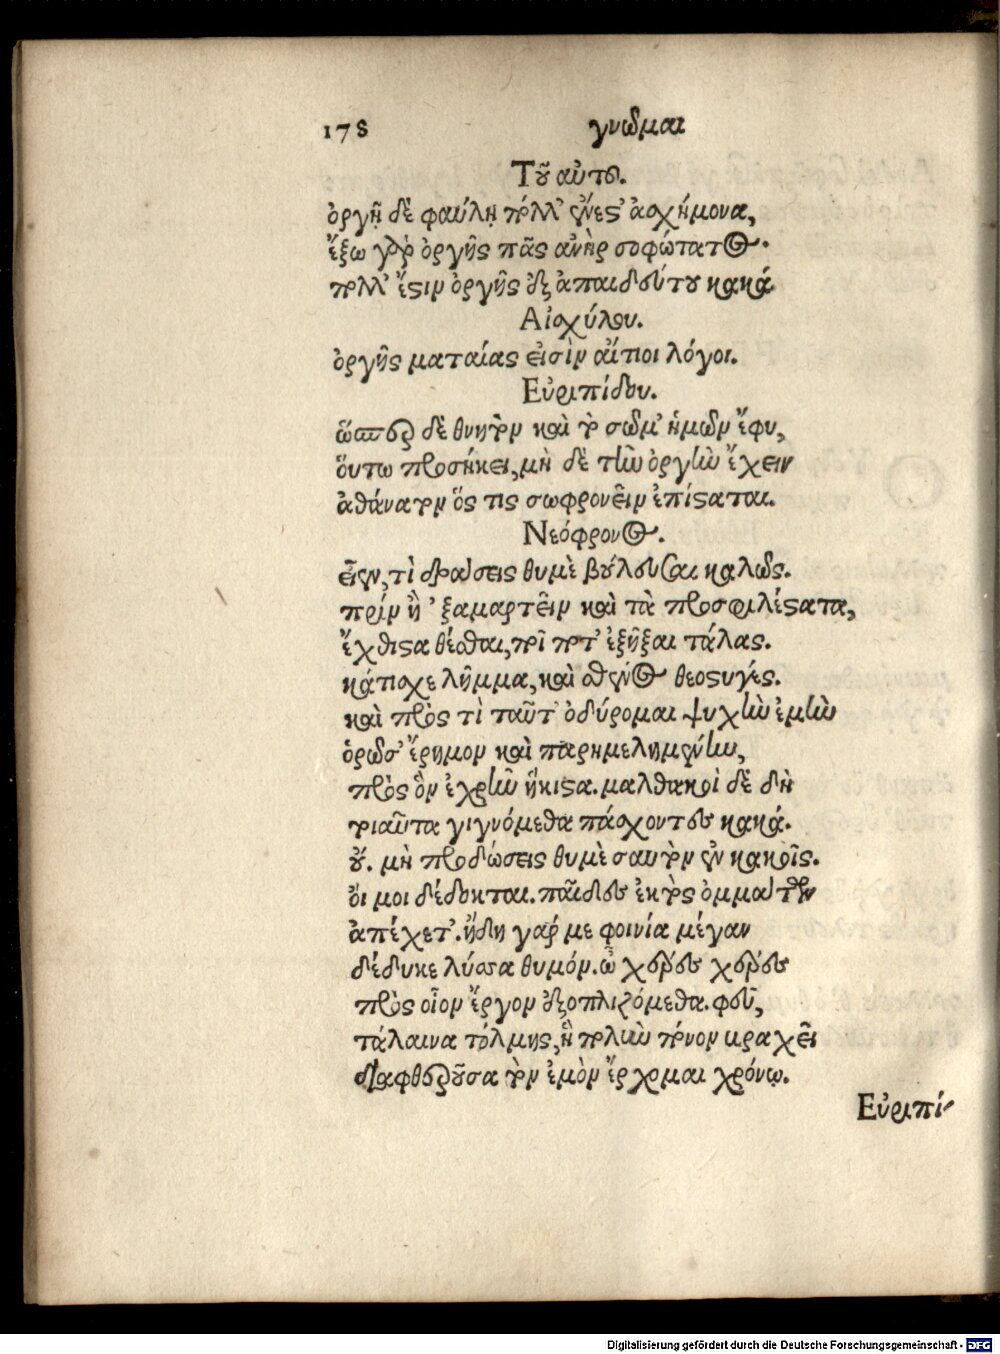 178 γνῶμαι
Τοῦ αὐτοῦ.
ὀργῇ δὲ φαύλῃ πόλλ' ἔνεστ' ἀσχήμονα,
ἔξω γὰρ ὀργῆς πᾶς ἀνὴρ σοφώτατος.
πόλλ' ἔστιν ὀργῆς ἐξ ἀπαιδεύτου κακά.
Αἰσχύλου.
ὀργῆς ματαίας εἰσὶν αἴτιοι λόγοι.
Εὐριπίδου.
ὥσπερ δὲ θνητὸν καὶ τὸ σῶμ' ἡμῶν ἔφυ,
οὕτω προσήκει, μὴ δὲ τὴν ὀργὴν ἔχειν
ἀθάνατον ὅς τις σωφρονεῖν ἐπίσταται.
Νεόφρονος.
εἶεν, τὶ δράσεις θυμὲ βούλευσαι καλῶς.
πρὶν ἢ 'ξαμαρτεῖν καὶ τὰ προσφιλέστατα,
ἔχθιστα θέσθαι, ποῖ ποτ' ἐξῇξαι τάλας.
κάτισχε λῆμμα, καὶ σθένος θεοστυγές.
καὶ πρὸς τὶ ταῦτ' ὀδύρομαι ψυχὴν ἐμὴν
ὁρῶσ' ἔρημον καὶ παρημελημένην,
πρὸς ὃν ἐχρῆν ἥκιστα. μαλθακοὶ δὲ δὴ
τοιαῦτα γιγνόμεθα πάσχοντες κακά.
οὔ. μὴ προδώσεις θυμὲ σαυτὸν ἐν κακοῖς.
οἴ μοι δέδοκται. παῖδες ἐκτὸς ὀμμάτων
ἀπέχετ'. ἤδη γάρ με φοινία μέγαν
δέδυκε λύσσα θυμόν. ὦ χέρες χέρες
πρὸς οἷον ἔργον ἐξοπλιζόμεθα. φεῦ,
τάλαινα τόλμης, ἢ πολὺν πόνον βραχεῖ
διαφθεροῦσα τὸν ἐμὸν ἔρχομαι χρόνῳ.
Εὐριπί-
Digitalisierung gefördert durch die Deutsche Forschungsgemeinschaft - DFG